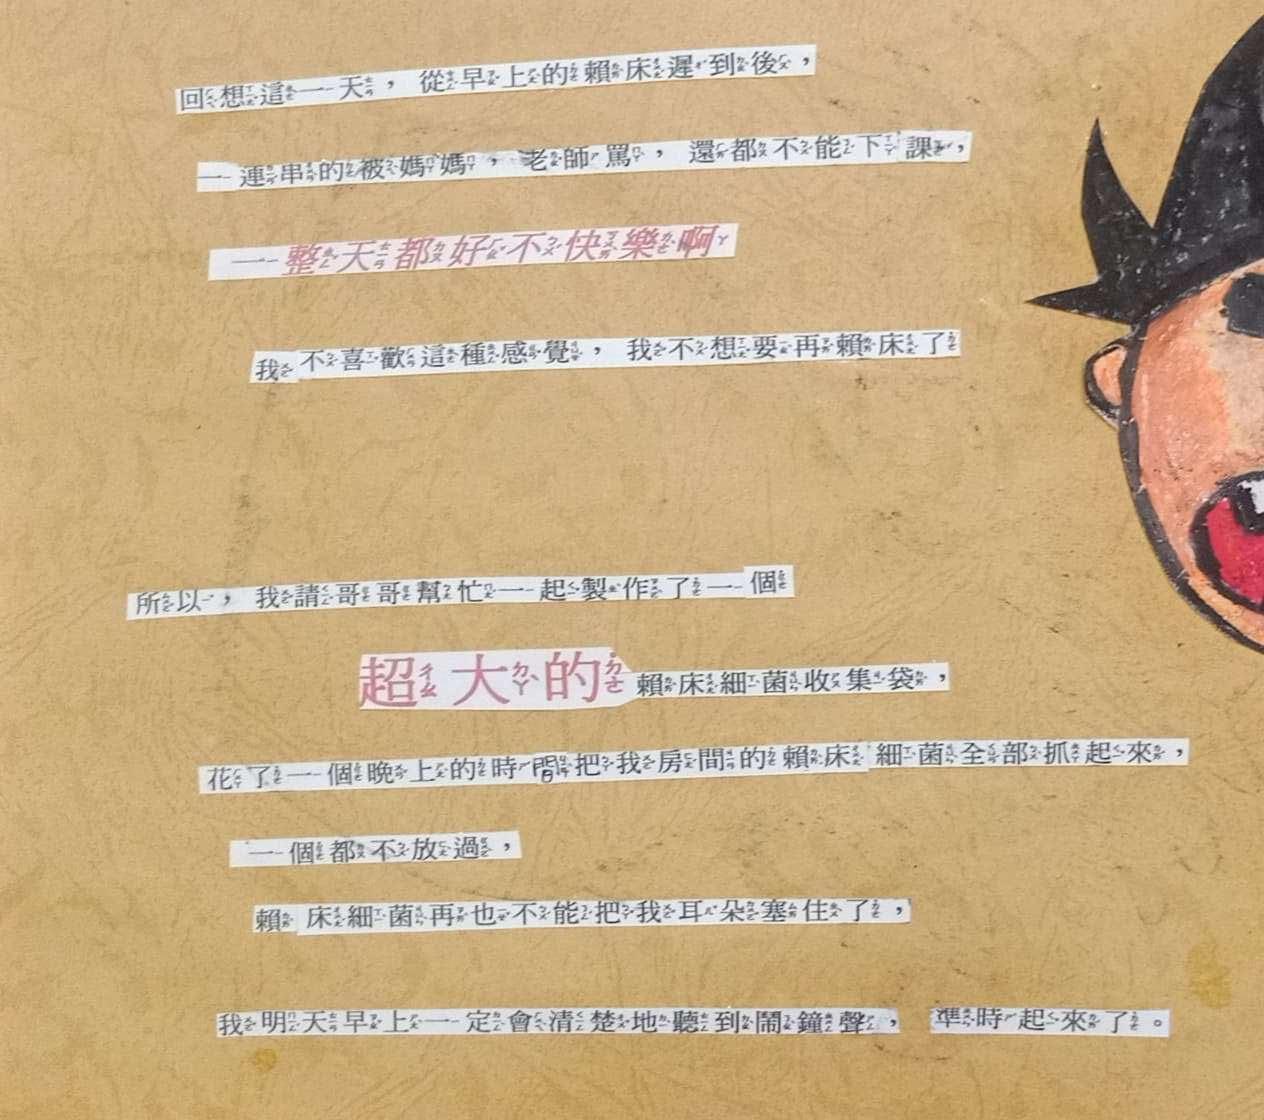 回想這一天，從早上的賴床遲到後，
一連串的被媽媽，老師罵，還都不能下課，
一整天都好不快樂啊
我不喜歡這種感覺，我不想要再賴床了
所以，我請哥哥幫忙一起製作了一個
超大的賴床細菌收集袋，
花了一個晚上的時間把我房間的賴床細菌全部抓起來，
一個都不放過，
賴床細菌再也不能把我耳朵塞住了，
我明天早上一定會清楚地聽到鬧鐘聲，準時起來了。